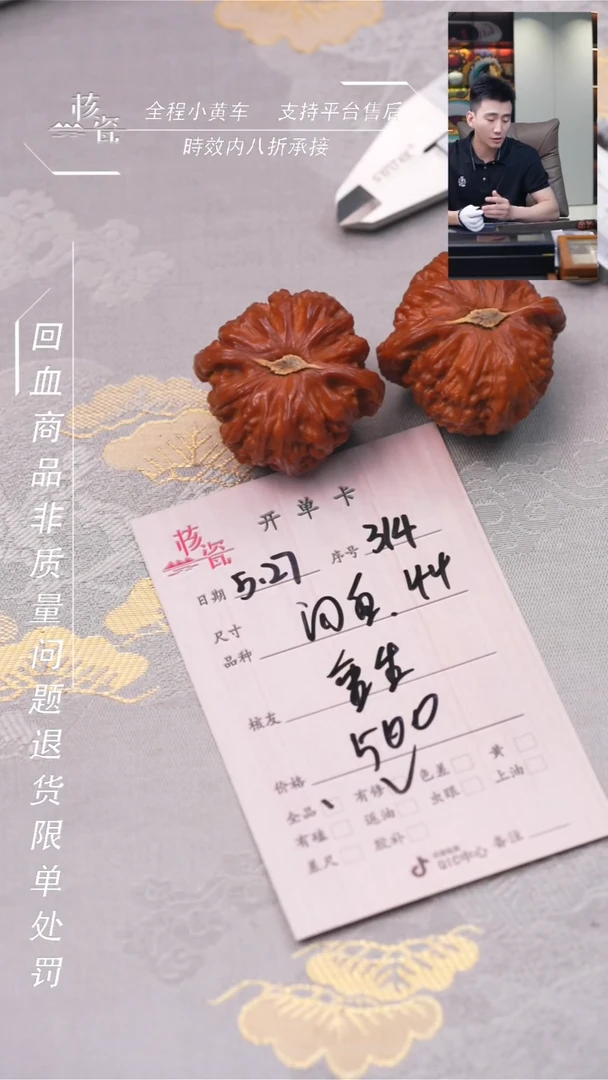 核瓷
全程小黄车 支持平台售后
時效内八折承接
回血商品非质量问题退货限单处罚
核瓷
开单卡
日期 5.27 序号 314
尺寸
品种 闷鱼.44
核友
价格 500
全品 有修 色差 黄
有磕 返油 虫眼 上油
差尺 胶补
QIC中心 备注